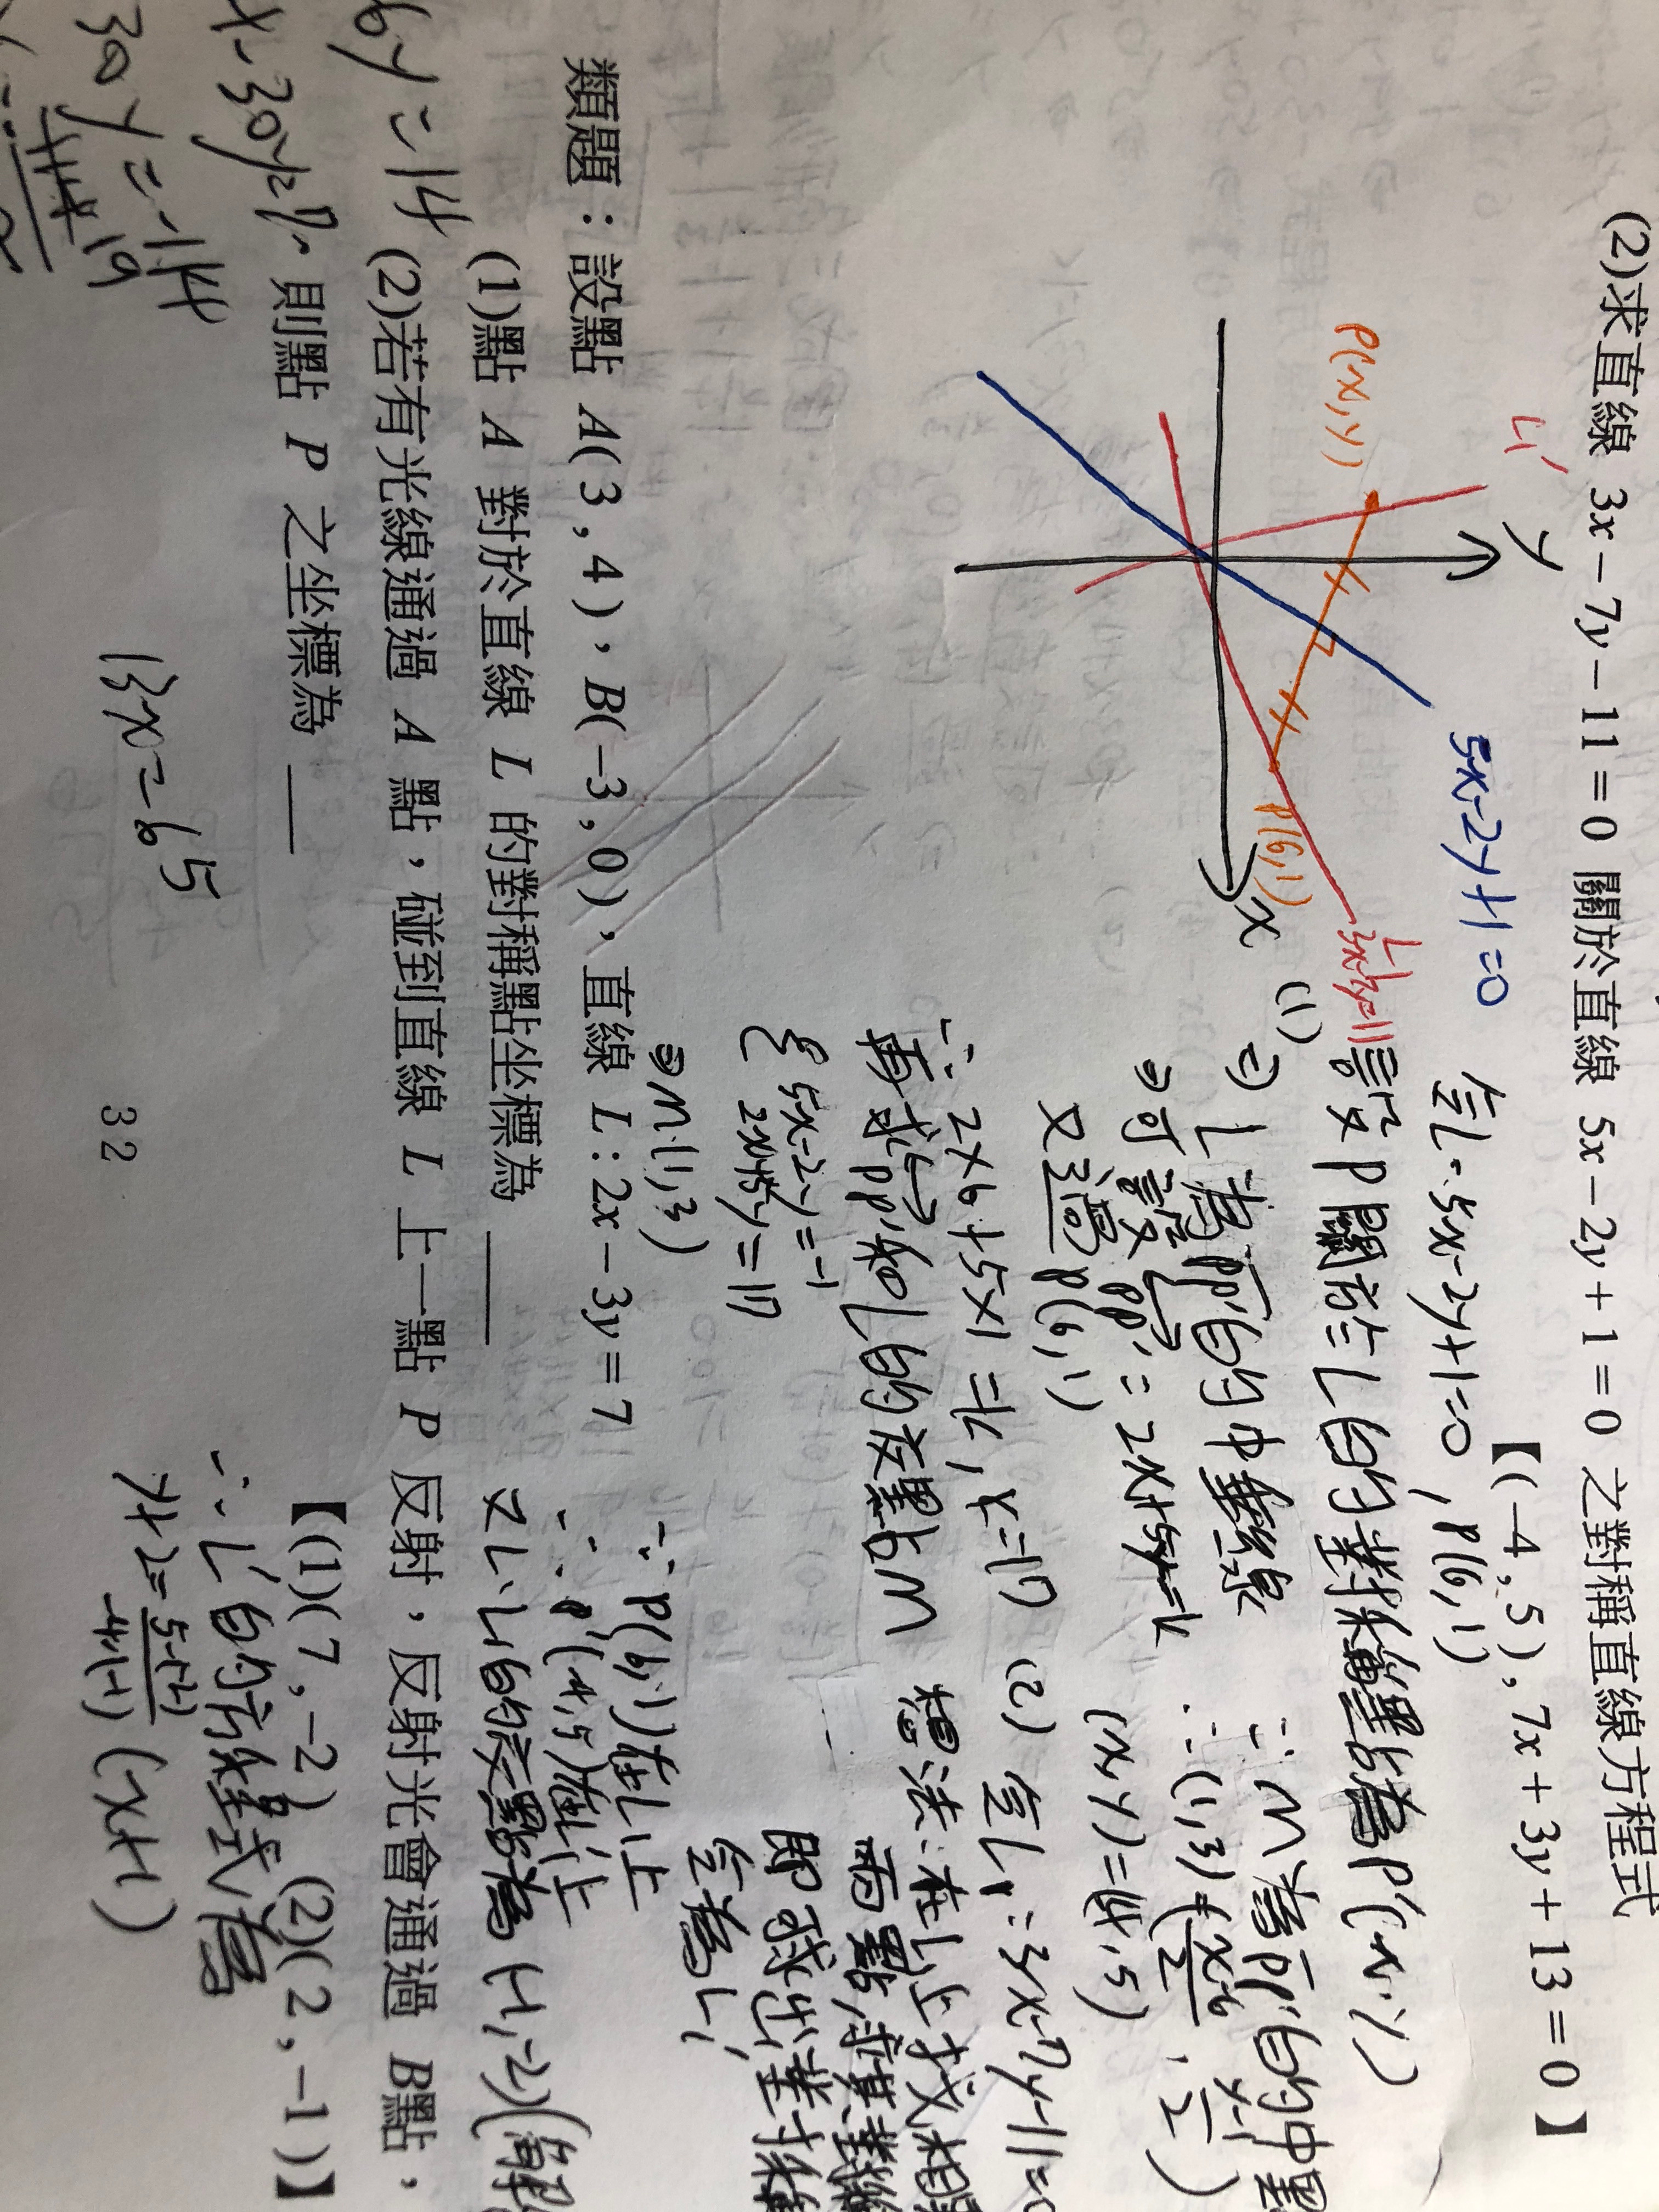 (2)求直線 3x－7y－11＝0 關於直線 5x－2y＋1＝0 之對稱直線方程式
【(－4,5),7x＋3y＋13＝0】
L1'
y
5x-2y+1=0
P(x,y)
P(6,1)
x
L1
令L=5x-2y+1=0, P(6,1)
(1)
設P關於L的對稱點為P'(x,y)
⇒L為PP'的中垂線
⇒可設PP'：2x+5y=k
又過P(6,1)
∴2×6+5×1=k, k=17
再求PP'和L的交點M
5x-2y=-1
2x+5y=17
⇒M(1,3)
∵M為PP'的中點
(x,y)=(-4,5)
(2)
令L1:3x-7y-11=0
想法:在L1上找相
兩點,求其對稱
即求出對稱
令為L1'
∵P(6,1)在L1上
∴P'(-4,5)在L1'上
又L、L1的交點為(-1,-2)
∴L1'的方程式為
y+2=\frac{5-(-2)}{-4-(-1)}(x+1)
類題：設點 A(3,4)、B(－3,0)，直線 L:2x－3y＝7
(1)點 A 對於直線 L 的對稱點坐標為 ____
(2)若有光線通過 A 點，碰到直線 L 上一點 P 反射，反射光會通過 B點，
則點 P 之坐標為 ___
【(1)(7,－2) (2)(2,－1)】
6y=14
30y=-114
13x=65
32